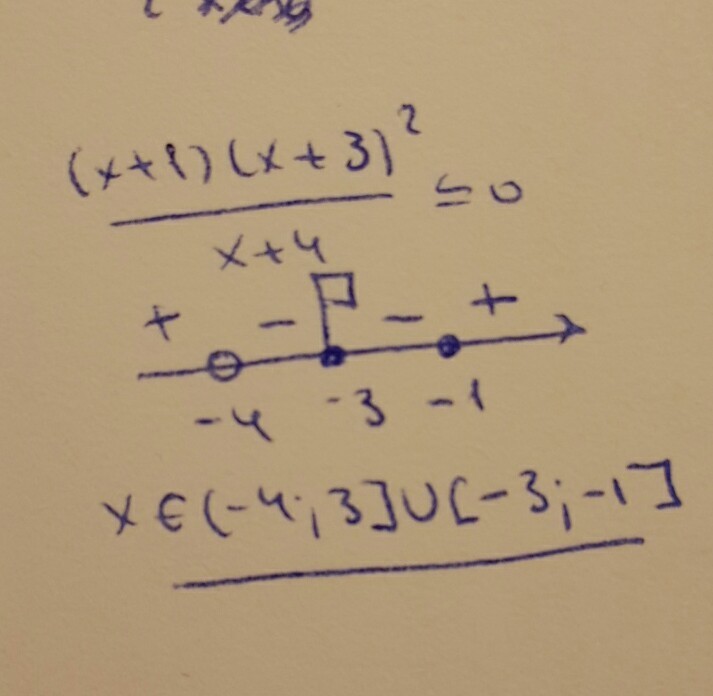 (x+1)(x+3)²
x+4
≤ 0
+ − − +
-4 -3 -1
x∈(-4;3]∪[-3;-1]